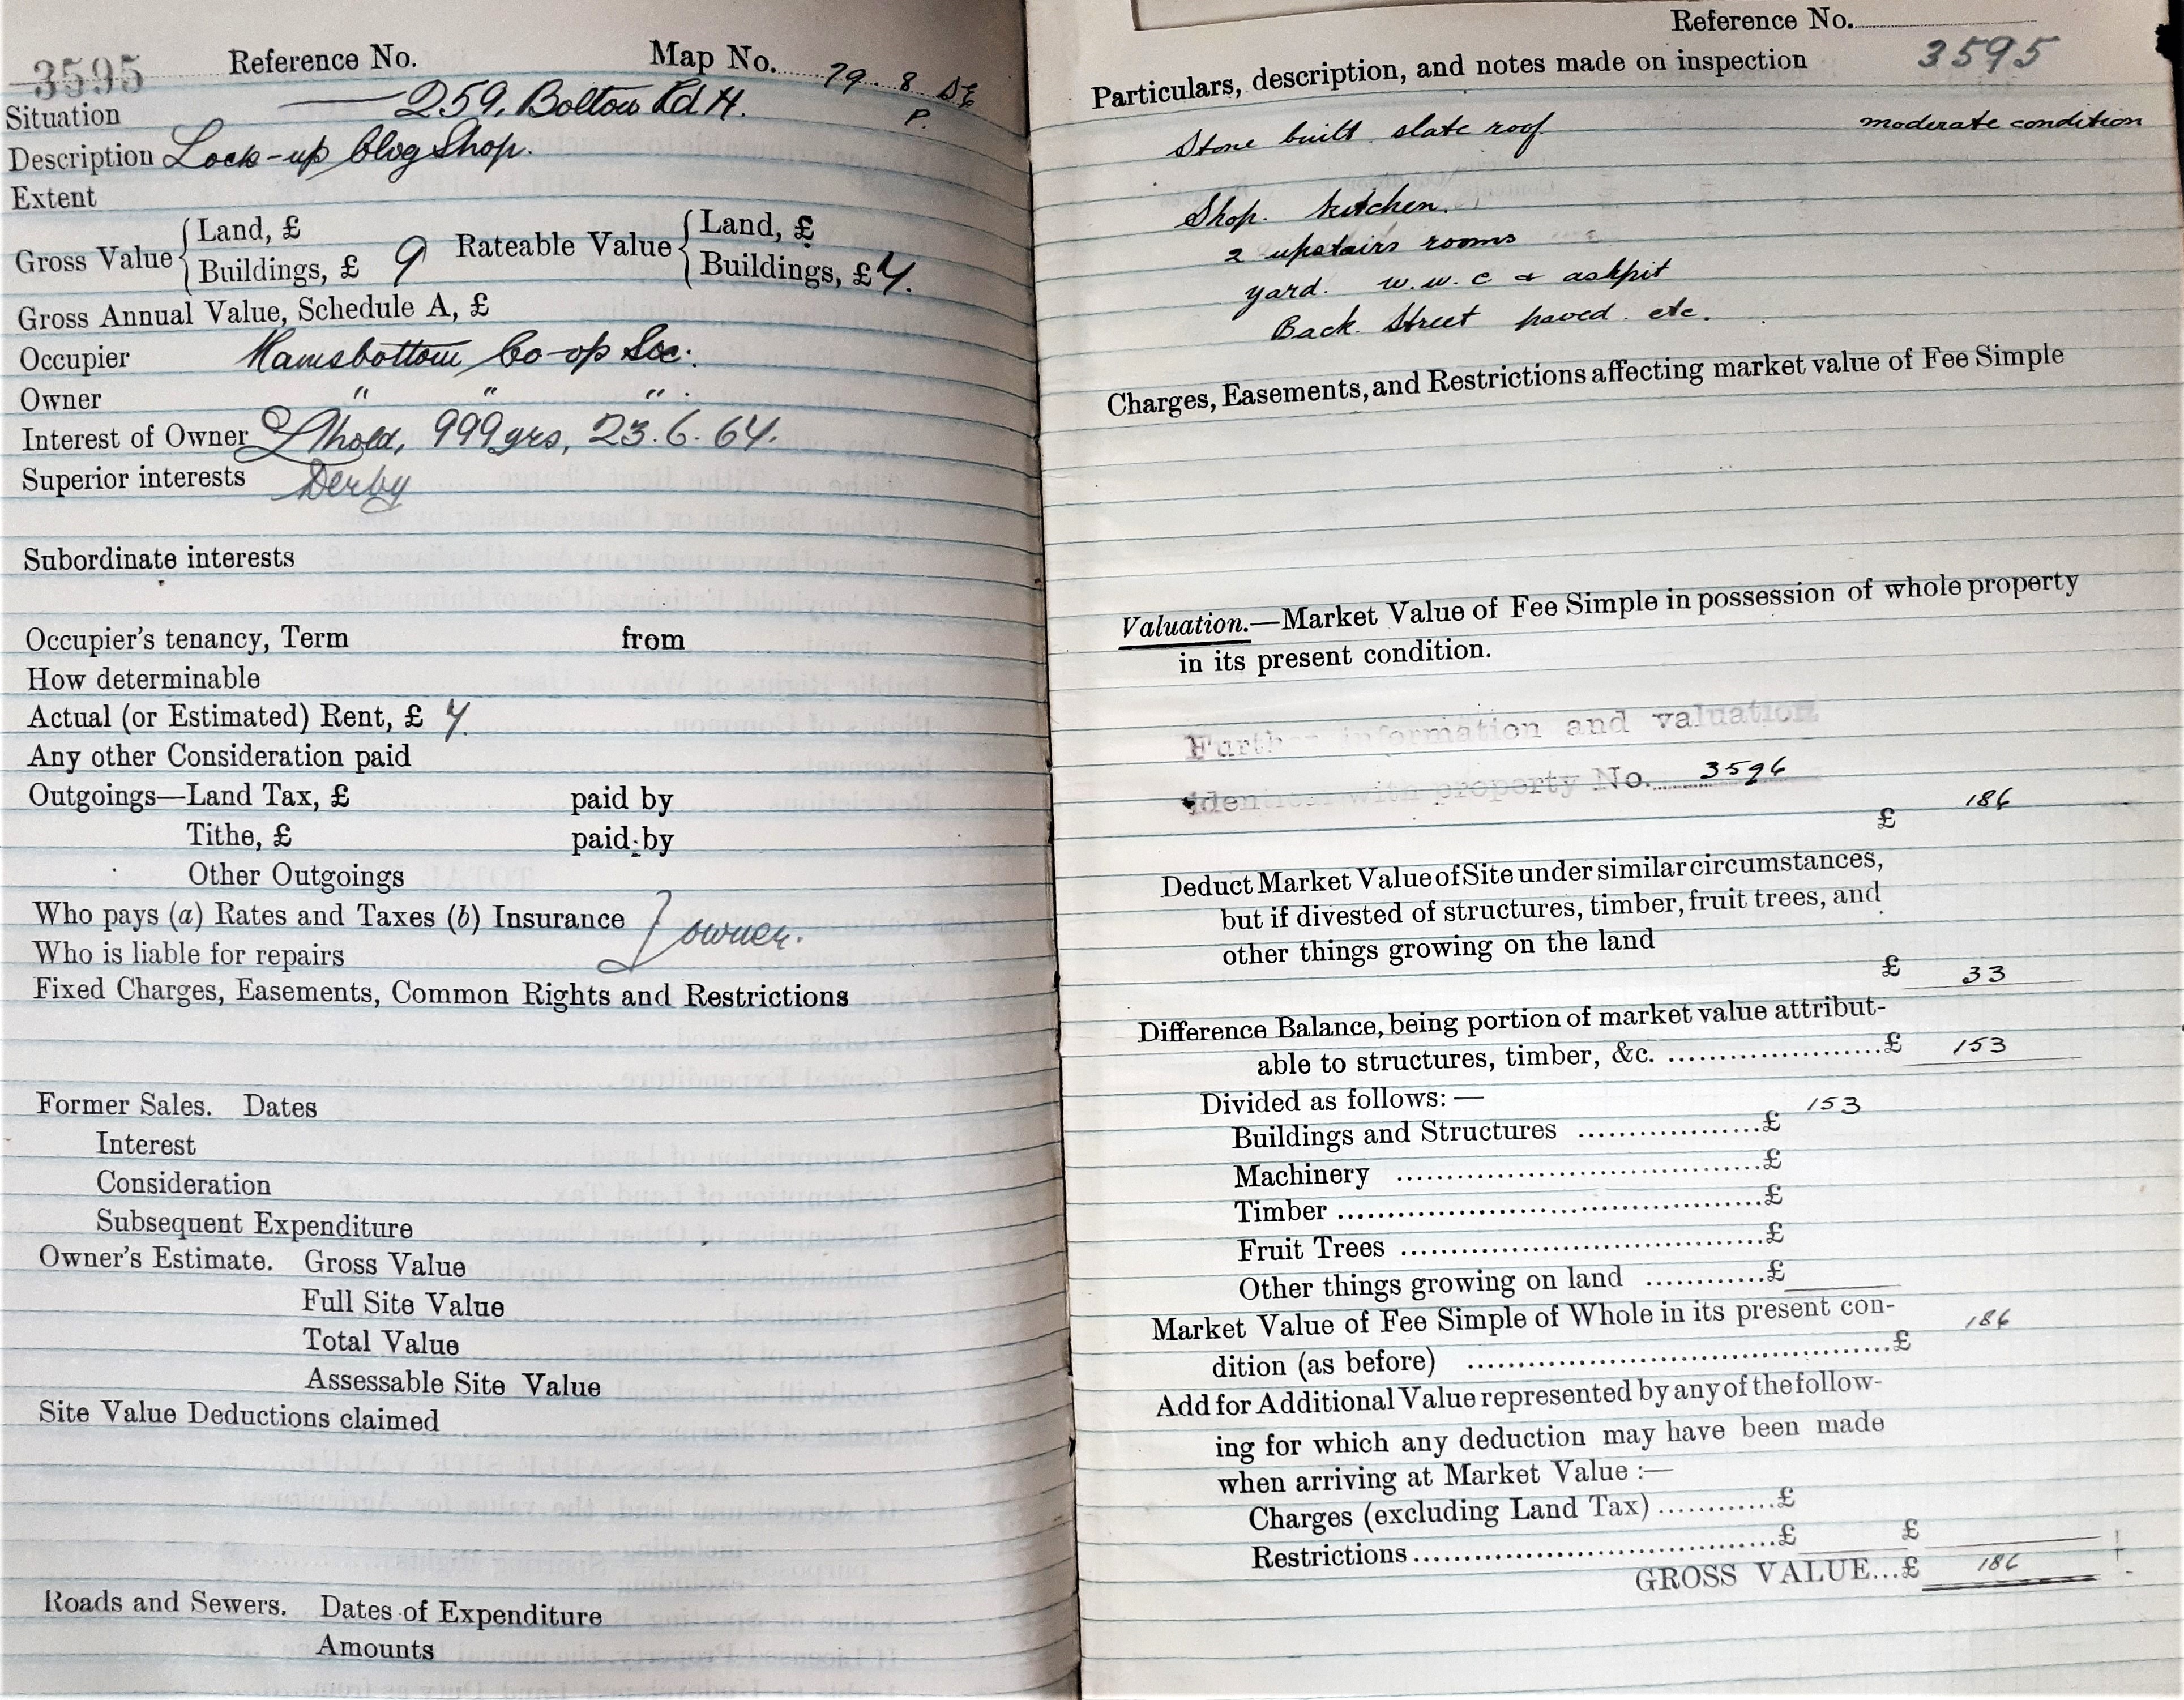 3595 Reference No. Map No. 79. 8 SE
P.
Situation 259, Bolton Rd N.
Description Lock-up Clog Shop.
Extent
Gross Value { Land, £
Buildings, £ 9
Rateable Value { Land, £
Buildings, £ 7.
Gross Annual Value, Schedule A, £
Occupier Ramsbottom Co-op Soc.
Owner " " "
Interest of Owner L/hold, 999 yrs, 23.6.64.
Superior interests Derby
Subordinate interests
Occupier's tenancy, Term from
How determinable
Actual (or Estimated) Rent, £ 7.
Any other Consideration paid
Outgoings—Land Tax, £ paid by
Tithe, £ paid by
Other Outgoings
Who pays (a) Rates and Taxes (b) Insurance } owner.
Who is liable for repairs
Fixed Charges, Easements, Common Rights and Restrictions
Former Sales. Dates
Interest
Consideration
Subsequent Expenditure
Owner's Estimate. Gross Value
Full Site Value
Total Value
Assessable Site Value
Site Value Deductions claimed
Roads and Sewers. Dates of Expenditure
Amounts
Reference No.
3595
Particulars, description, and notes made on inspection
Stone built slate roof. moderate condition
Shop. kitchen.
2 upstairs rooms
yard. w.w.c & ashpit
Back Street paved. etc.
Charges, Easements, and Restrictions affecting market value of Fee Simple
Valuation.—Market Value of Fee Simple in possession of whole property
in its present condition.
Further information and valuation
identical with property No. 3596
£ 186
Deduct Market Value of Site under similar circumstances,
but if divested of structures, timber, fruit trees, and
other things growing on the land
£ 33
Difference Balance, being portion of market value attribut-
able to structures, timber, &c. ........ £ 153
Divided as follows:—
Buildings and Structures ........ £ 153
Machinery ........ £
Timber ........ £
Fruit Trees ........ £
Other things growing on land ........ £
Market Value of Fee Simple of Whole in its present con-
dition (as before) ........ £ 186
Add for Additional Value represented by any of the follow-
ing for which any deduction may have been made
when arriving at Market Value :—
Charges (excluding Land Tax) ........ £
Restrictions ........ £ £
GROSS VALUE...£ 186